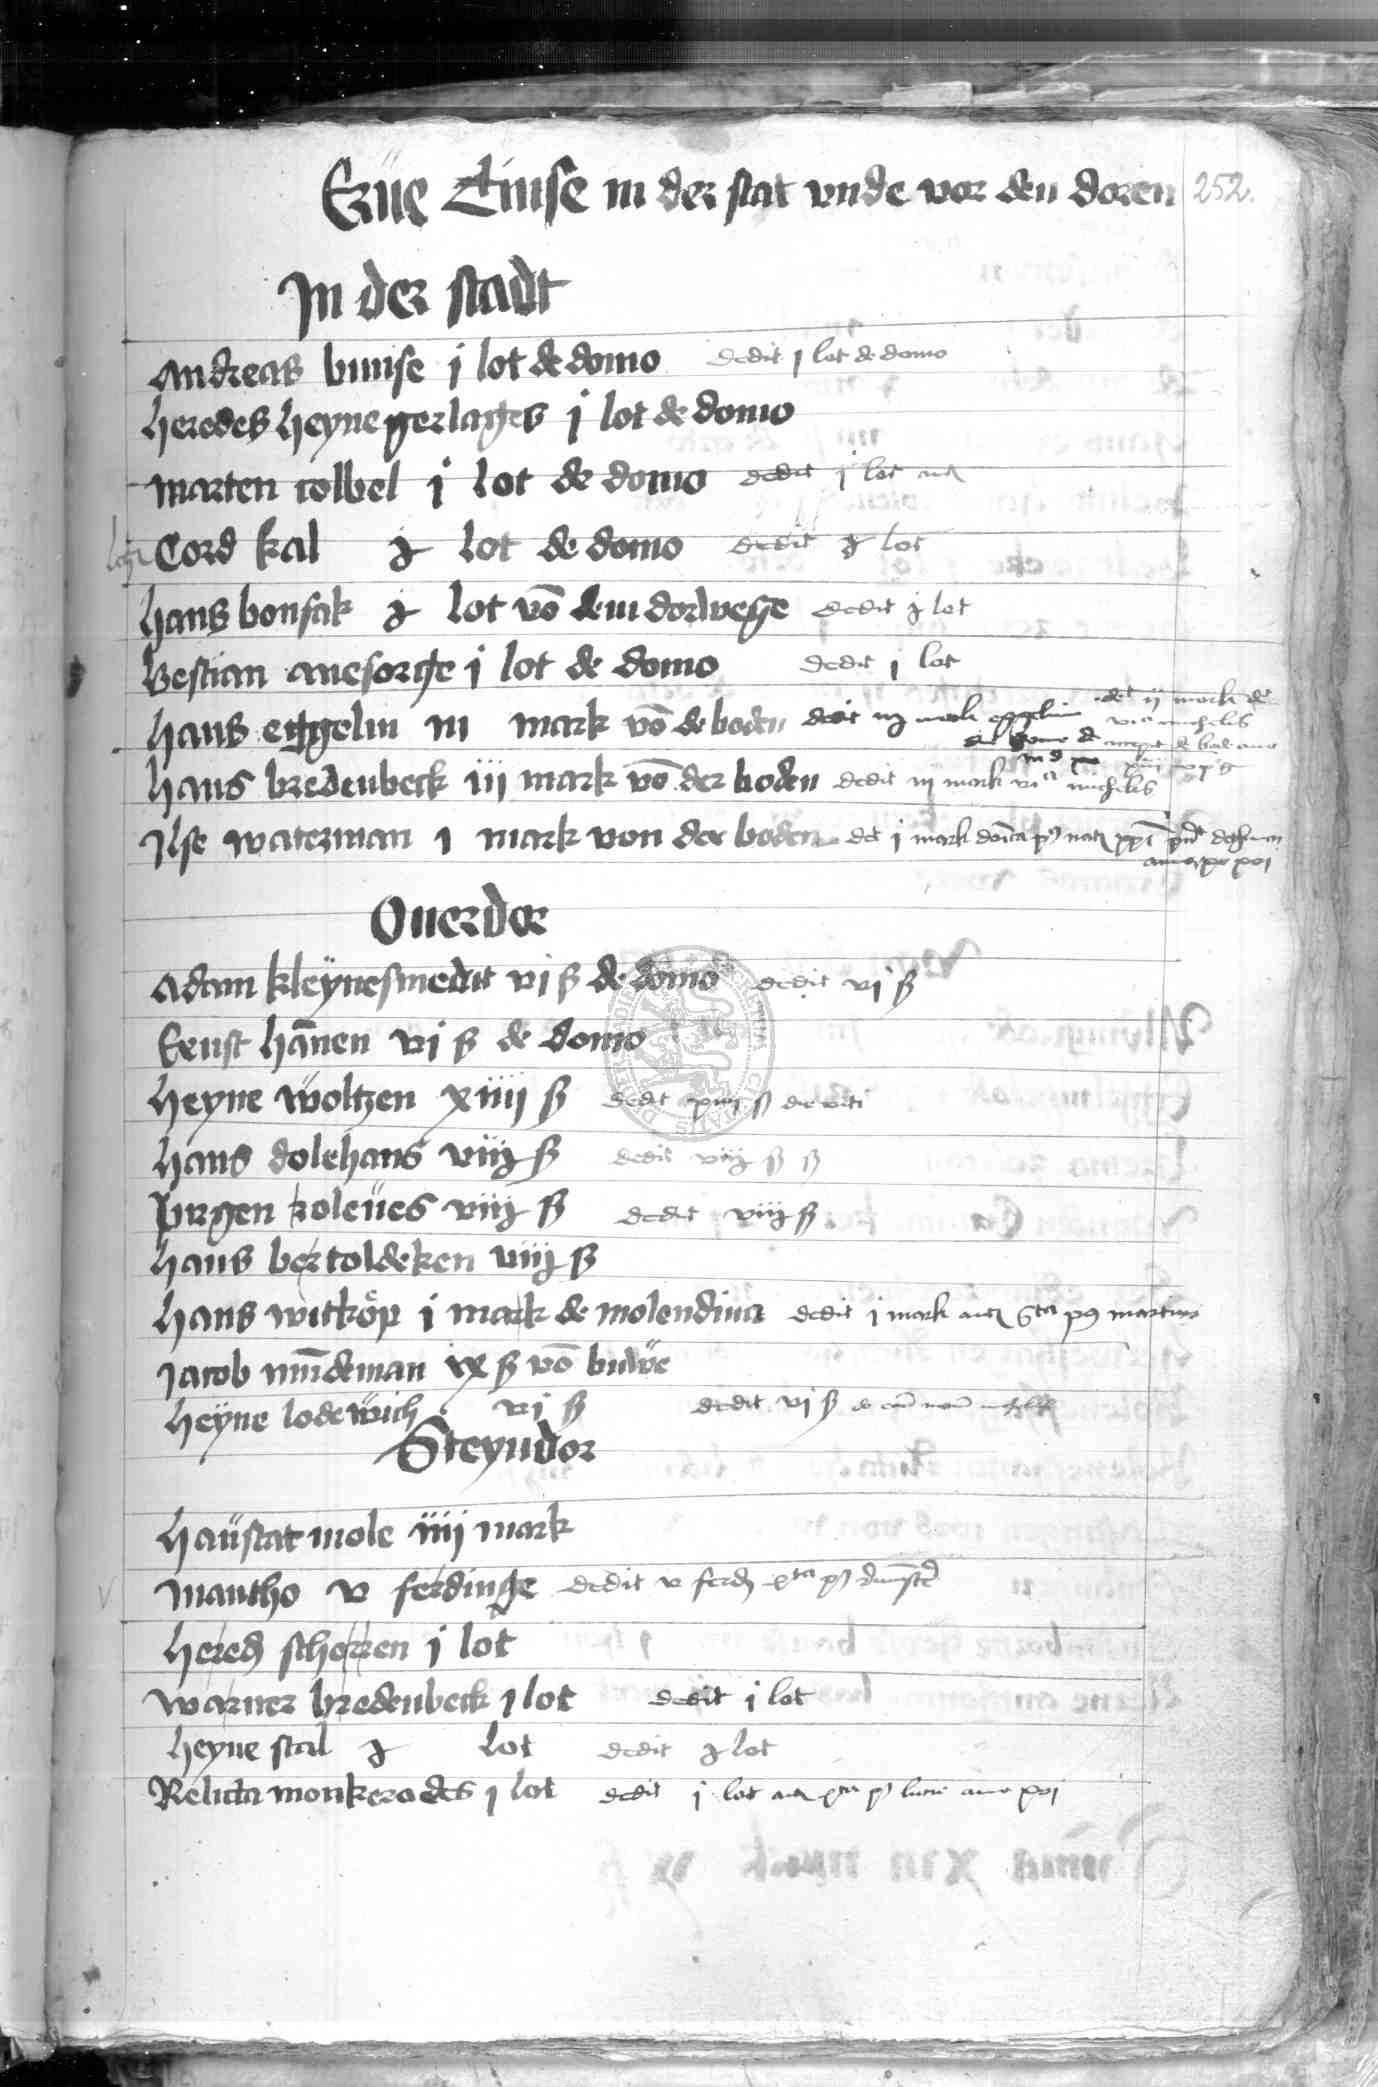 Erue Tinse in der stat vnde vor den doren 252.
In der stadt
Andreas buuse j lot de domo dedit j lot de domo
heredes heyne gerlages j lot de domo
marten rolbel j lot de domo dedit j lot
Cord kal lot de domo dedit lot
hans bonsak lot vō dem dorwege dedit lot
Bestian anesorge j lot de domo dedit j lot
hans eggelin iij mark vō de boden dedit iij mark eggelin det ij mark
michelis
hans bredenbeck iij mark vō der boden dedit iij mark michelis
Ilse waterman j mark von der boden det j mark
Ouerdor
Adam kleynesmedit vj ß de domo dedit vj ß
Ernst hānen vj ß de domo
heyne woltzen xiiij ß dedit xiiij ß
hans dolehans viiij ß dedit viiij ß
Jurgen roleues viiij ß dedit viiij ß
hans bertoldeken viiij ß
hans witkop j mark de molendina dedit j mark martini
Jacob mūdeman xx ß vō
heyne lodewich vj ß dedit vj ß
Steyndor
haustat mole iiij mark
mantho v ferdinge dedit v ferd
hered scherren j lot
warner bredenbeck j lot dedit j lot
heyne stal lot dedit lot
Relicta monkerodes j lot dedit j lot lucie anno xvj